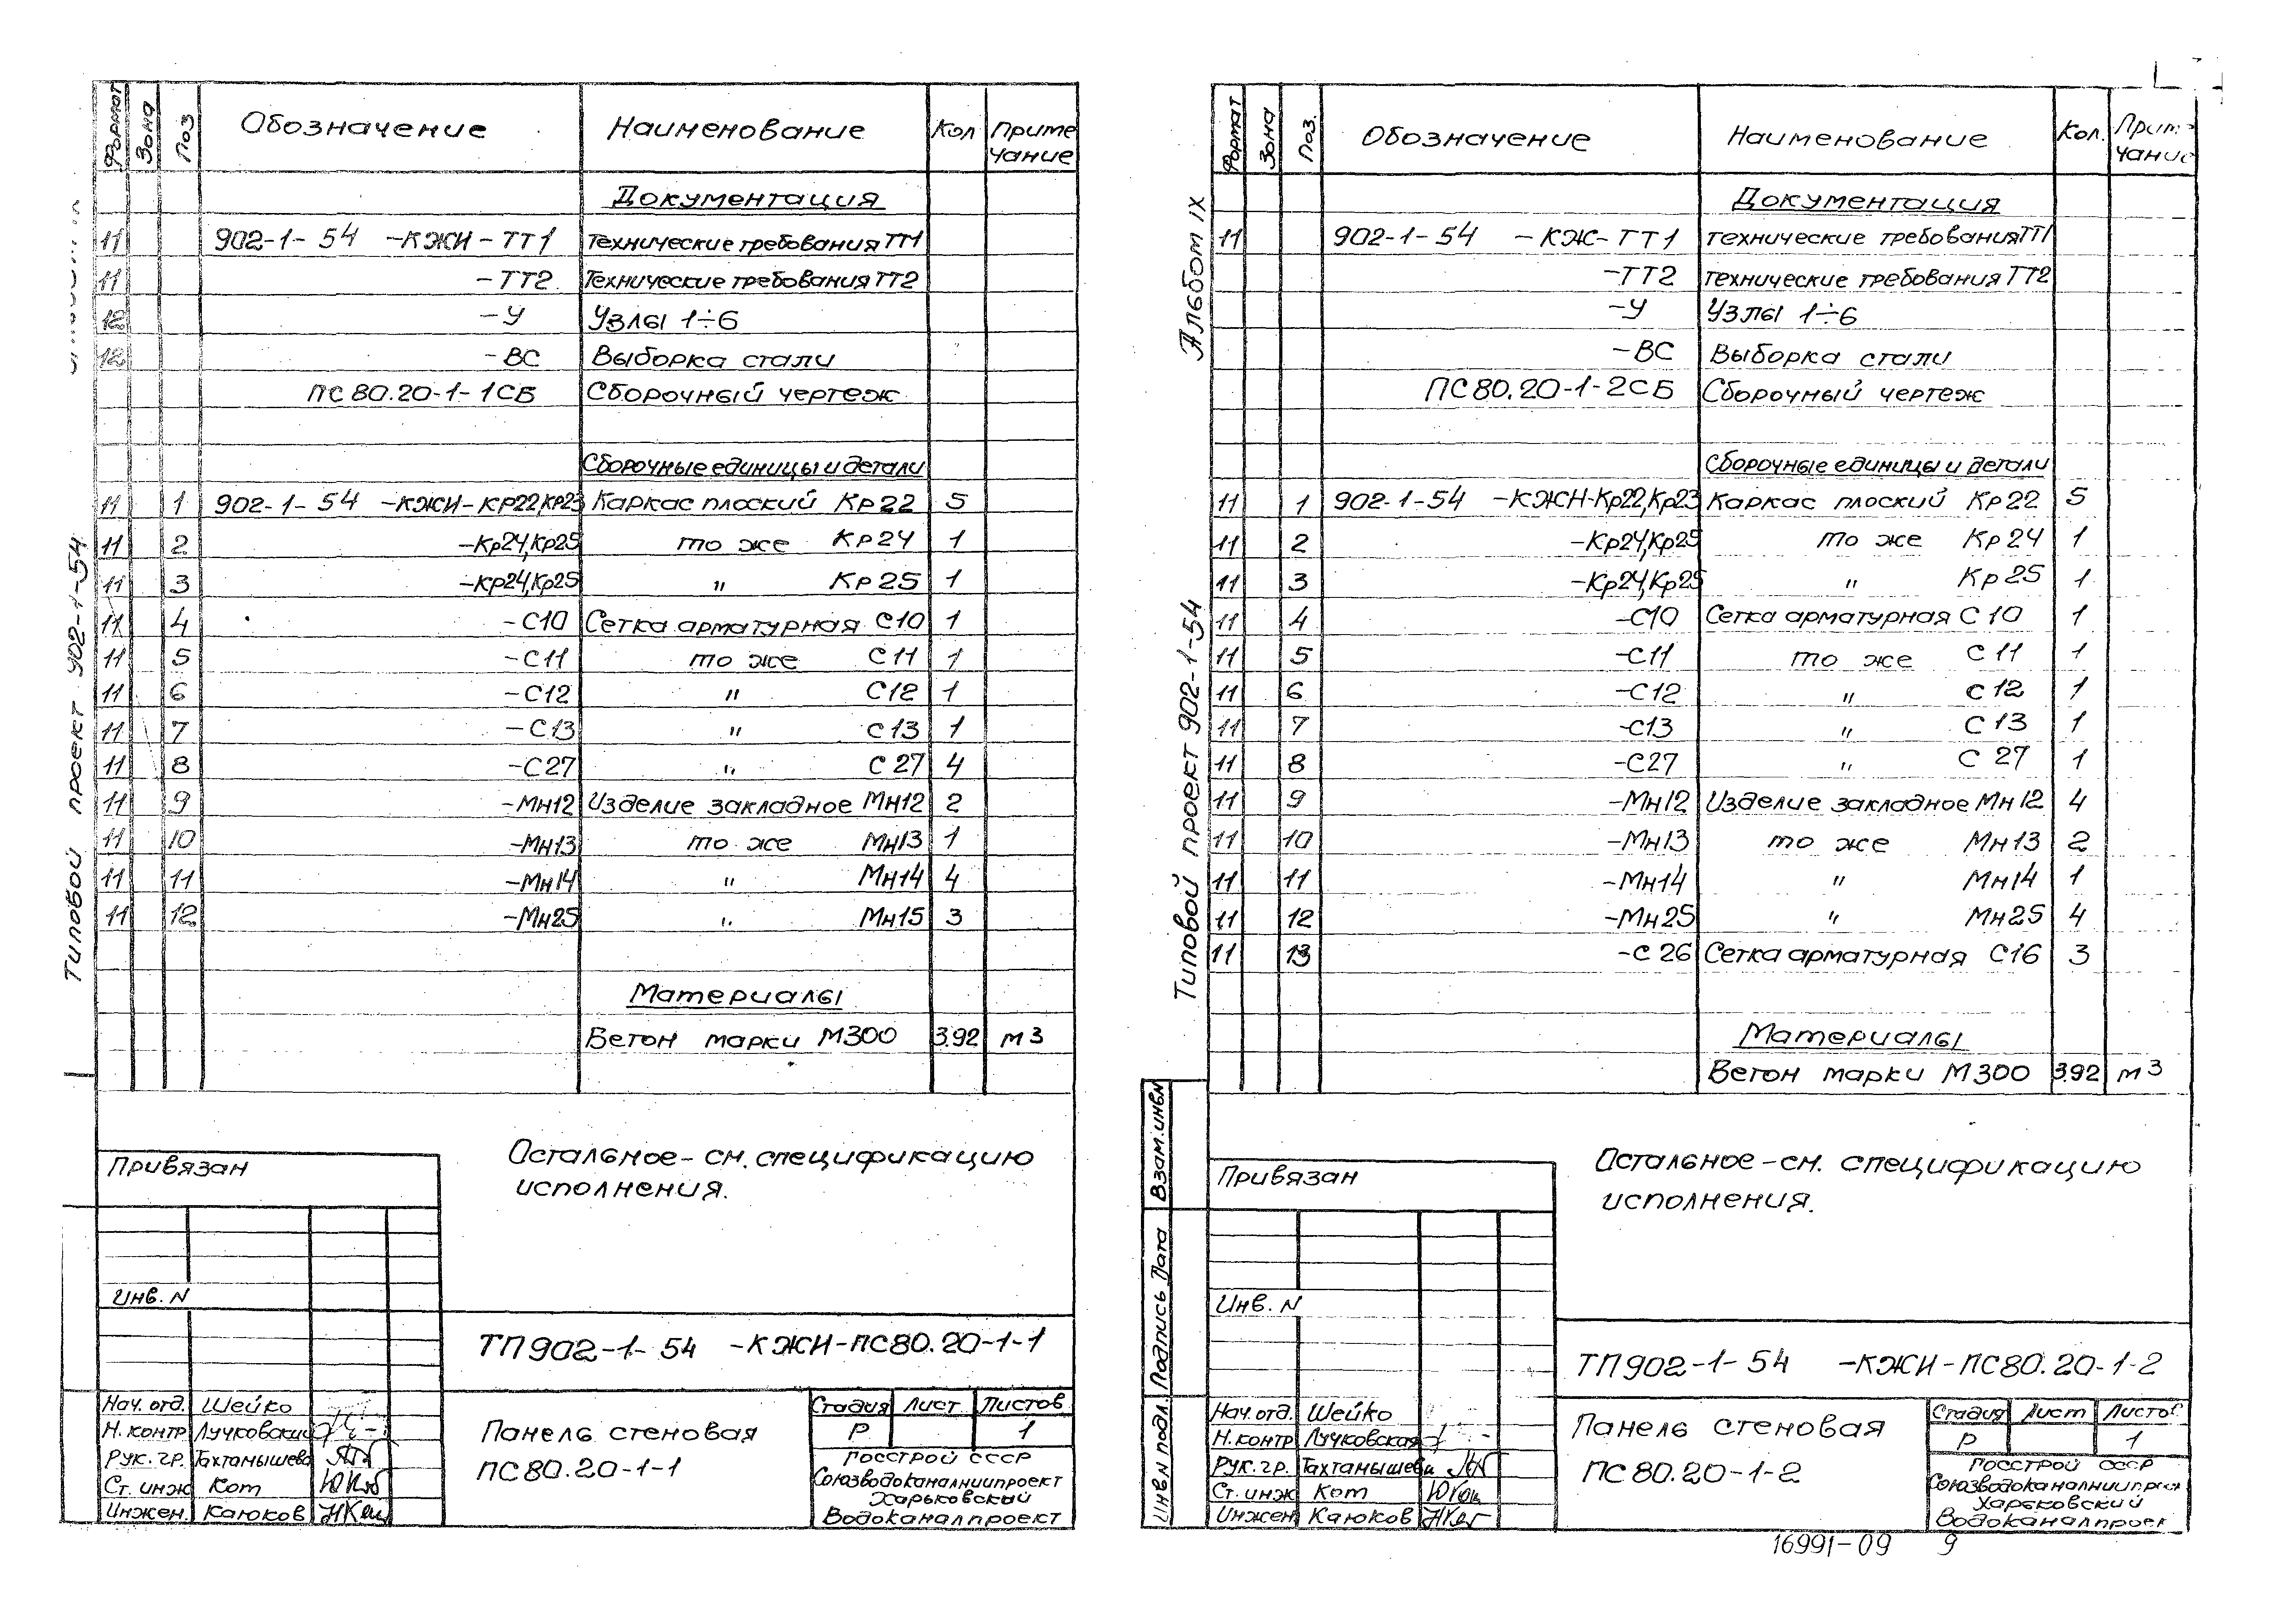 Формат Зона Поз Обозначение Наименование Кол Приме
чание
Документация
11 902-1-54 -КЖИ-ТТ1 Технические требования ТТ1
11 -ТТ2 Технические требования ТТ2
12 -У Узлы 1÷6
12 -ВС Выборка стали
ПС80.20-1-1СБ Сборочный чертеж
Сборочные единицы и детали
11 1 902-1-54 -КЖИ-КР22,КР23 Каркас плоский Кр22 5
11 2 -Кр24,Кр25 то же Кр24 1
11 3 -Кр24,Кр25 " Кр25 1
11 4 -С10 Сетка арматурная С10 1
11 5 -С11 то же С11 1
11 6 -С12 " С12 1
11 7 -С13 " С13 1
11 8 -С27 " С27 4
11 9 -Мн12 Изделие закладное Мн12 2
11 10 -Мн13 то же Мн13 1
11 11 -Мн14 " Мн14 4
11 12 -Мн25 " Мн15 3
Материалы
Бетон марки М300 3.92 м3
Типовой проект 902-1-54
Остальное-см. спецификацию
исполнения.
Привязан
Инв. N
ТП902-1-54 -КЖИ-ПС80.20-1-1
Нач. отд. Шейко
Н. контр Лучковский
Рук. гр. Тахтамышева
Ст. инж Кот
Инжен. Каюков
Панель стеновая
ПС80.20-1-1
Стадия Лист Листов
Р 1
Госстрой СССР
Союзводоканалниипроект
Харьковский
Водоканалпроект
Формат Зона Поз. Обозначение Наименование Кол. Прим
чание
Документация
11 902-1-54 -КЖ-ТТ1 Технические требования ТТ1
-ТТ2 Технические требования ТТ2
-У Узлы 1÷6
-ВС Выборка стали
ПС80.20-1-2СБ Сборочный чертеж
Сборочные единицы и детали
11 1 902-1-54 -КЖН-Кр22,Кр23 Каркас плоский Кр22 5
11 2 -Кр24,Кр25 то же Кр24 1
11 3 -Кр24,Кр25 " Кр25 1
11 4 -С10 Сетка арматурная С10 1
11 5 -С11 то же С11 1
11 6 -С12 " С12 1
11 7 -С13 " С13 1
11 8 -С27 " С27 1
11 9 -Мн12 Изделие закладное Мн12 4
11 10 -Мн13 то же Мн13 2
11 11 -Мн14 " Мн14 1
11 12 -Мн25 " Мн25 4
11 13 -С26 Сетка арматурная С16 3
Материалы
Бетон марки М300 3.92 м3
Альбом IX
Типовой проект 902-1-54
Взам. инв.N
Подпись Дата
Инв.N подл.
Остальное-см. спецификацию
исполнения.
Привязан
Инв. N
ТП902-1-54 -КЖИ-ПС80.20-1-2
Нач. отд. Шейко
Н. контр Лучковская
Рук. гр. Тахтамышева
Ст. инж Кот
Инжен Каюков
Панель стеновая
ПС80.20-1-2
Стадия Лист Листов
Р 1
Госстрой СССР
Союзводоканалниипроект
Харьковский
Водоканалпроект
16991-09 9